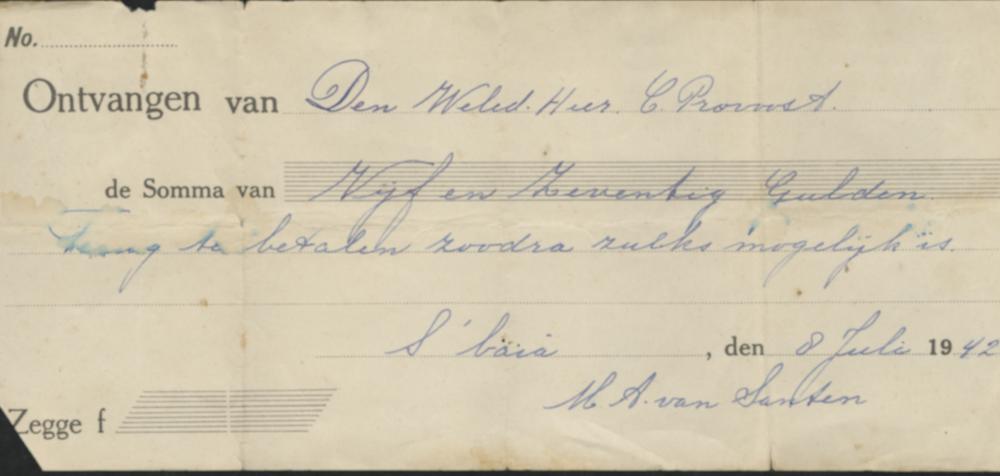 No.
Ontvangen van Den Weled. Heer. C. Provost.
de Somma van Vijf en Zeventig Gulden.
Terug te betalen zoodra zulks mogelijk is.
S'baia, den 8 Juli 1942
M A. van Santen
Zegge f